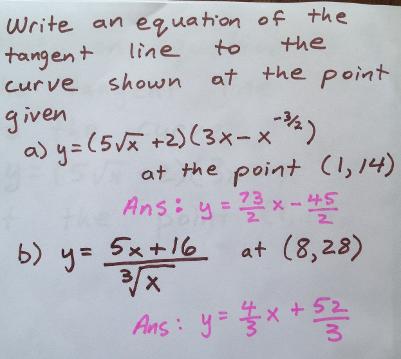 Write an equation of the
tangent line to the
curve shown at the point
given
a) y=(5√x +2)(3x-x^(-3/2))
at the point (1,14)
Ans: y = 73/2 x - 45/2
b) y= (5x+16)/(∛x) at (8,28)
Ans: y = 4/3 x + 52/3